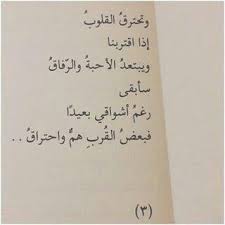 وتحترقُ القلوبُ
إذا اقتربنا
ويبتعدُ الأحبةُ والرّفاقُ
سأبقى
رغمُ أشواقي بعيدًا
فبعضُ القُربِ همٌّ واحتراقُ . .
(٣)